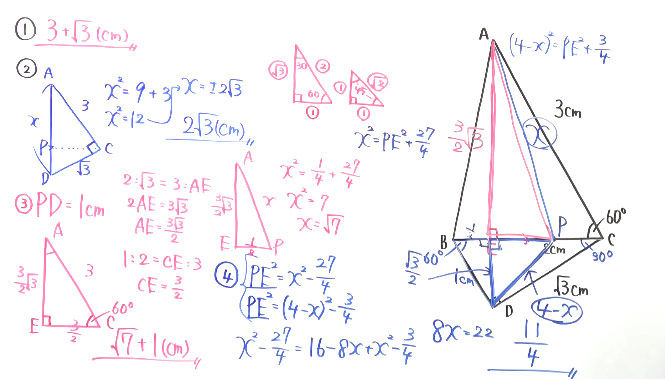 ① 3+√3(cm)
②
A
x
3
P
C
D
√3
x²=9+3
x²=12
x=±2√3
2√3(cm)
√3
30
②
60
①
①
√3
①
③ PD=1cm
2:√3=3:AE
2AE=3√3
AE=3√3/2
1:2=CE:3
CE=3/2
A
3/2√3
3
60°
E
3/2
C
√7+1(cm)
A
3/2√3
x
E
1/2
P
x²=1/4+27/4
x²=7
x=√7
x²=PE²+27/4
④ PE²=x²-27/4
PE²=(4-x)²-3/4
x²-27/4=16-8x+x²-3/4
8x=22
11/4
(4-x)²=PE²+3/4
A
3/2√3
x
3cm
60°
B
E
P
C
60°
2cm
90°
√3/2
1cm
√3cm
D
4-x